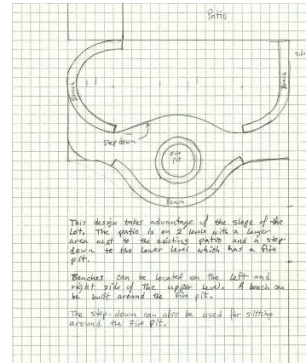 Patio
Bench
Bench
Step down
Fire
Pit
Bench
This design takes advantage of the slope of the
lot. The patio is on 2 levels with a larger
area next to the existing patio and a step
down to the lower level which has a fire
pit.
Benches can be located on the left and
right side of the upper level. A bench can
be built around the fire pit.
The step-down can also be used for sitting
around the Fire Pit.